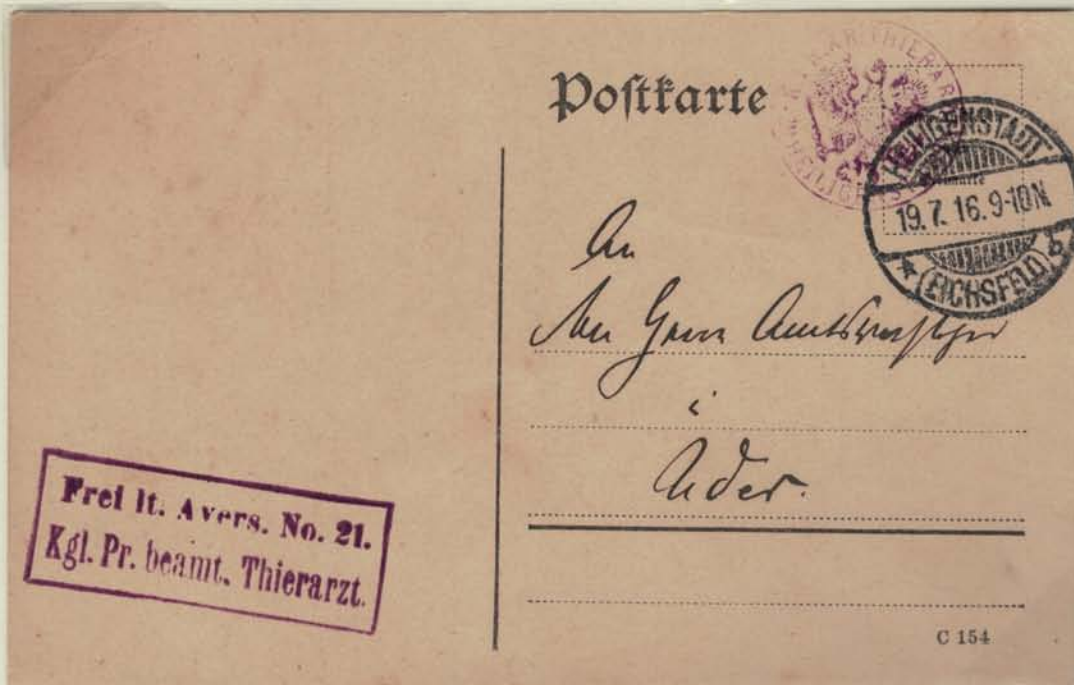 Postkarte
HEILIGENSTADT
19.7.16.9-10N.
* (EICHSFELD) b
An
den Herrn Amtsvorsteher
i
Uder.
Frei lt. Avers. No. 21.
Kgl. Pr. beamt. Thierarzt.
C 154